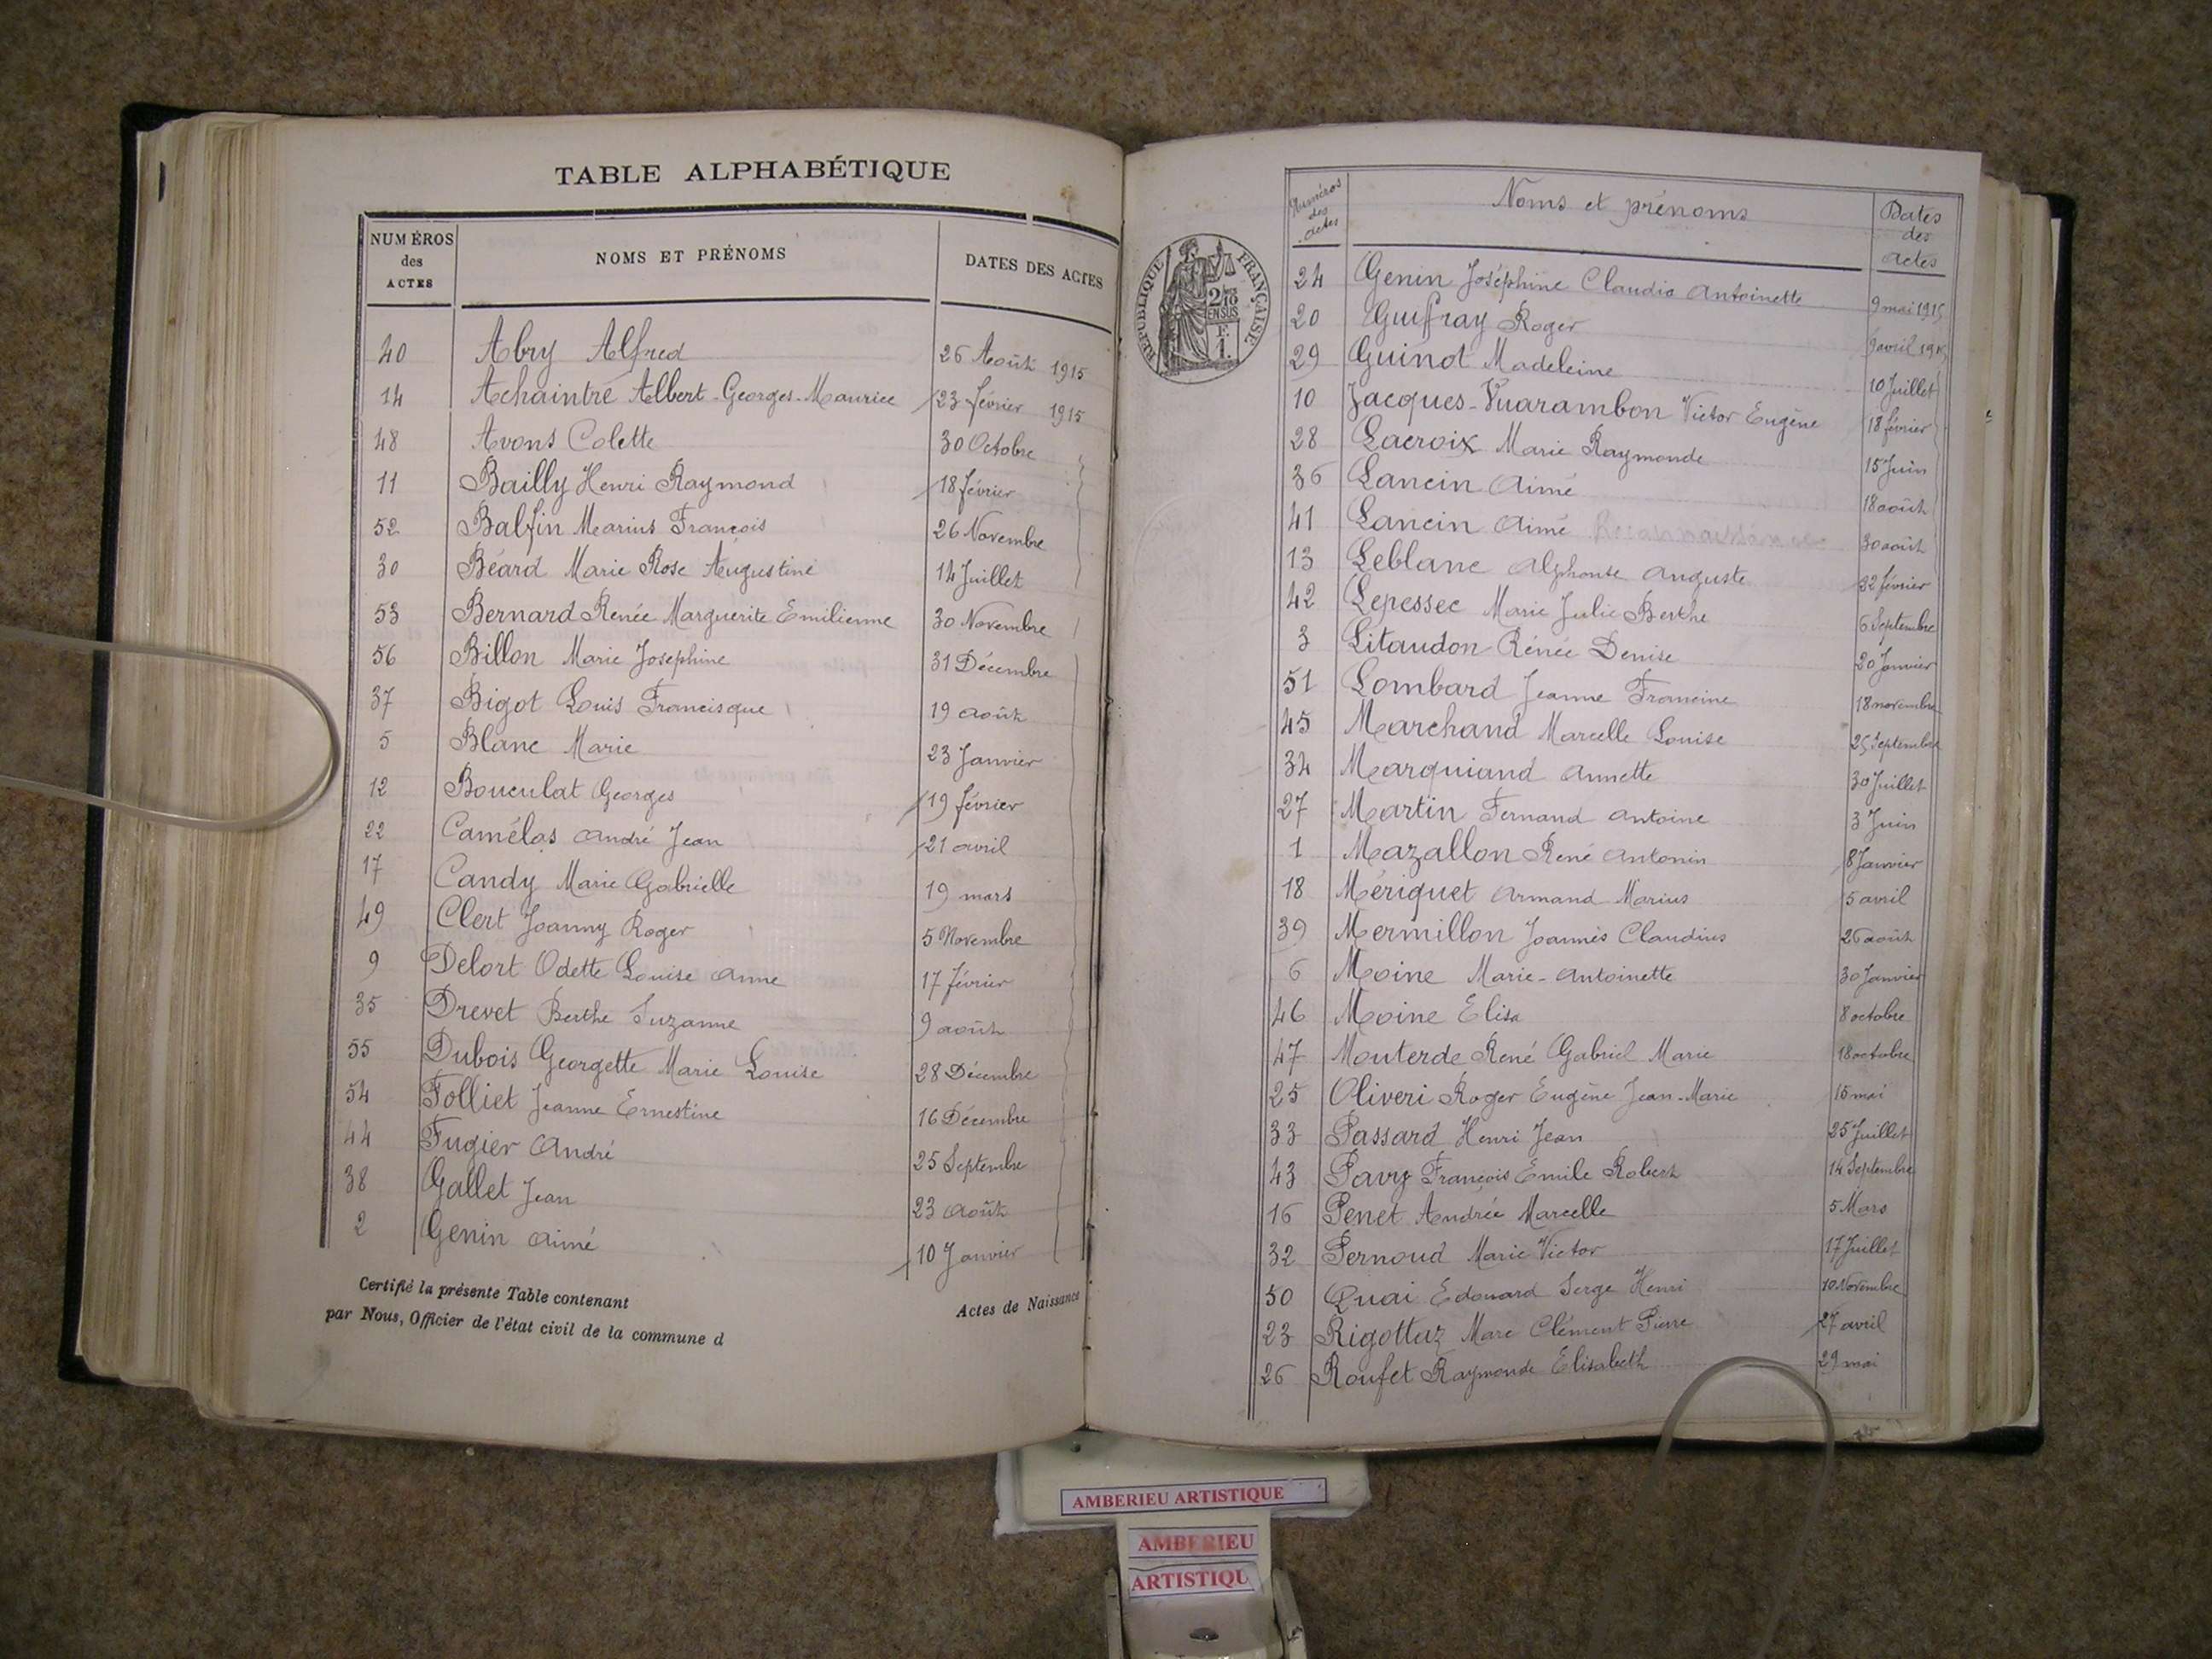 TABLE ALPHABÉTIQUE
NUMÉROS des ACTES NOMS ET PRÉNOMS DATES DES ACTES
40 Abry Alfred 26 Août 1915
14 Achaintre Albert-Georges-Maurice 23 février 1915
48 Avons Colette 30 Octobre
11 Bailly Henri Raymond 18 février
52 Balfin Marius François 26 Novembre
30 Béard Marie Rose Augustine 14 Juillet
53 Bernard Renée Marguerite Emilienne 30 Novembre
56 Billon Marie Josephine 31 Décembre
37 Bigot Louis Francisque 19 août
5 Blanc Marie 23 Janvier
12 Bouculat Georges 19 février
22 Camélas André Jean 21 avril
17 Candy Marie Gabrielle 19 mars
49 Clert Joanny Roger 5 Novembre
9 Delort Odette Louise Anne 17 février
35 Drevet Berthe Suzanne 9 août
55 Dubois Georgette Marie Louise 28 Décembre
54 Folliet Jeanne Ernestine 16 Décembre
44 Fugier André 25 Septembre
38 Gallet Jean 23 août
2 Genin Aimé 10 Janvier
Certifié la présente Table contenant Actes de Naissance
par Nous, Officier de l'état civil de la commune d
RÉPUBLIQUE FRANÇAISE
2/10 EN SUS
F. 1.
Numéros des actes Noms et prénoms Dates des actes
24 Genin Joséphine Claudia Antoinette 9 mai 1915
20 Guiffray Roger 9 avril 1915
29 Guinot Madeleine 10 Juillet
10 Jacques-Vuarambon Victor Eugène 18 février
28 Lacroix Marie Raymonde 15 Juin
36 Lancin Aimé 18 août
41 Lancin Aimé Reconnaissance 30 août
13 Leblanc Alphonse Auguste 22 février
42 Lepessec Marie Julie Berthe 6 Septembre
3 Litaudon Rénée Denise 20 Janvier
51 Lombard Jeanne Francine 18 novembre
45 Marchand Marcelle Louise 25 Septembre
34 Marquiand Annette 30 Juillet
27 Martin Fernand Antoine 3 Juin
1 Mazallon René Antonin 8 Janvier
18 Mériguet Armand Marius 5 avril
39 Mermillon Joannès Claudius 26 août
6 Moine Marie-Antoinette 30 Janvier
46 Moine Elisa 8 octobre
47 Mouterde René Gabriel Marie 18 octobre
25 Oliveri Roger Eugène Jean-Marie 15 mai
33 Passard Henri Jean 25 Juillet
43 Pavy François Emile Robert 14 Septembre
16 Penet Andrée Marcelle 5 Mars
32 Pernoud Marie Victor 17 Juillet
50 Quai Edouard Serge Henri 10 Novembre
23 Rigottaz Marc Clément Pierre 27 avril
26 Roufet Raymonde Elisabeth 29 mai
AMBERIEU ARTISTIQUE
AMBERIEU
ARTISTIQU